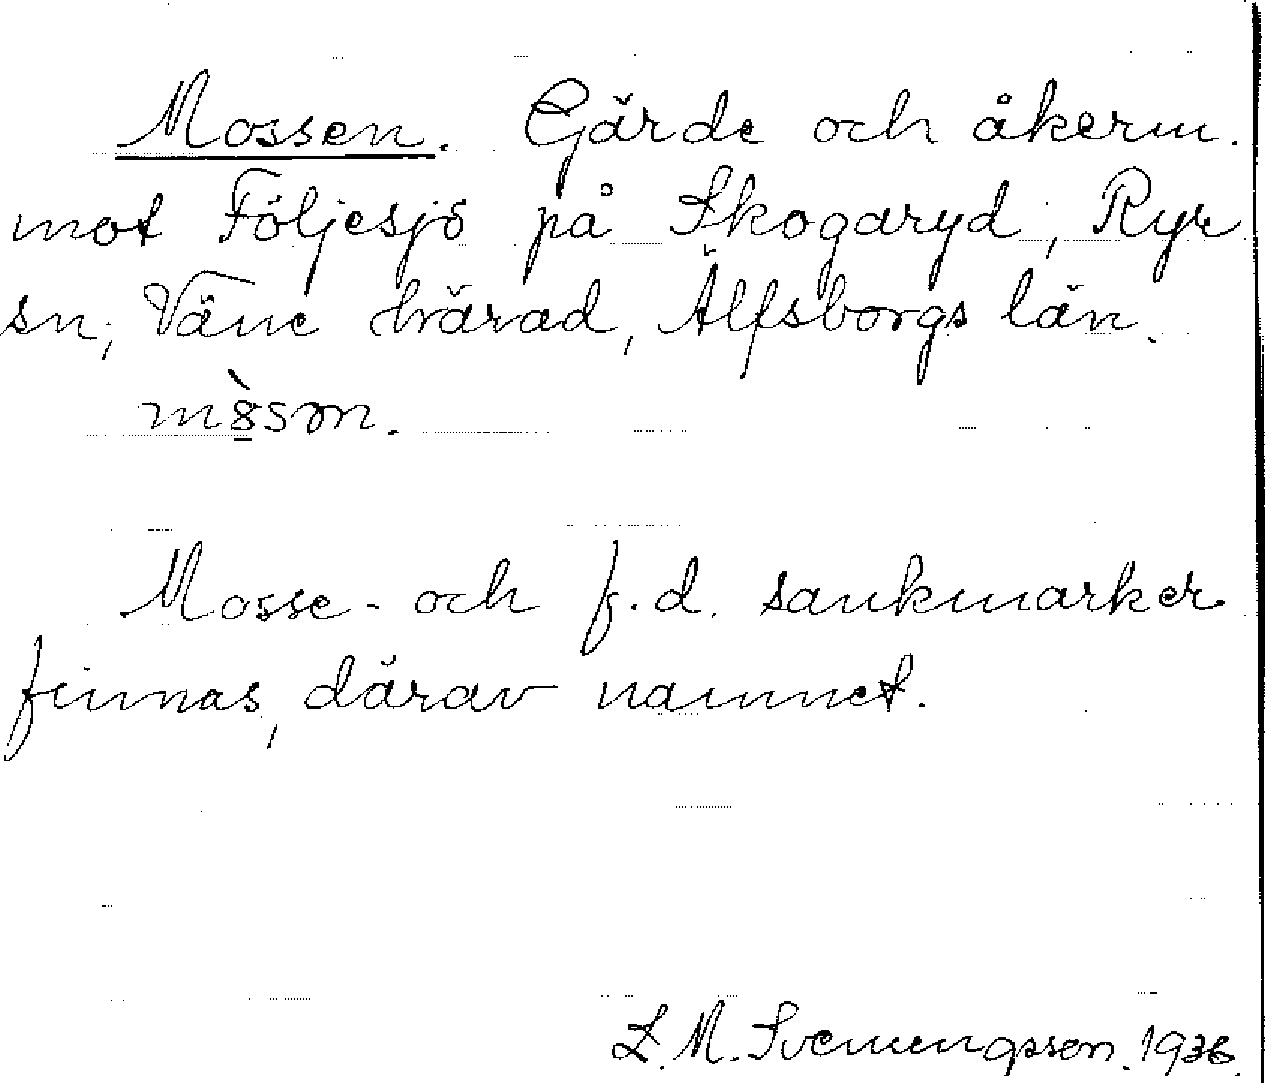 Mossen. Gärde och åkerm.
mot Följesjö på Skogaryd, Ryr
sn, Väne härad, Älfsborgs län.
Mosse- och f.d. sankmarker
finnas, därav namnet.
L. M. Svenungsson. 1936.